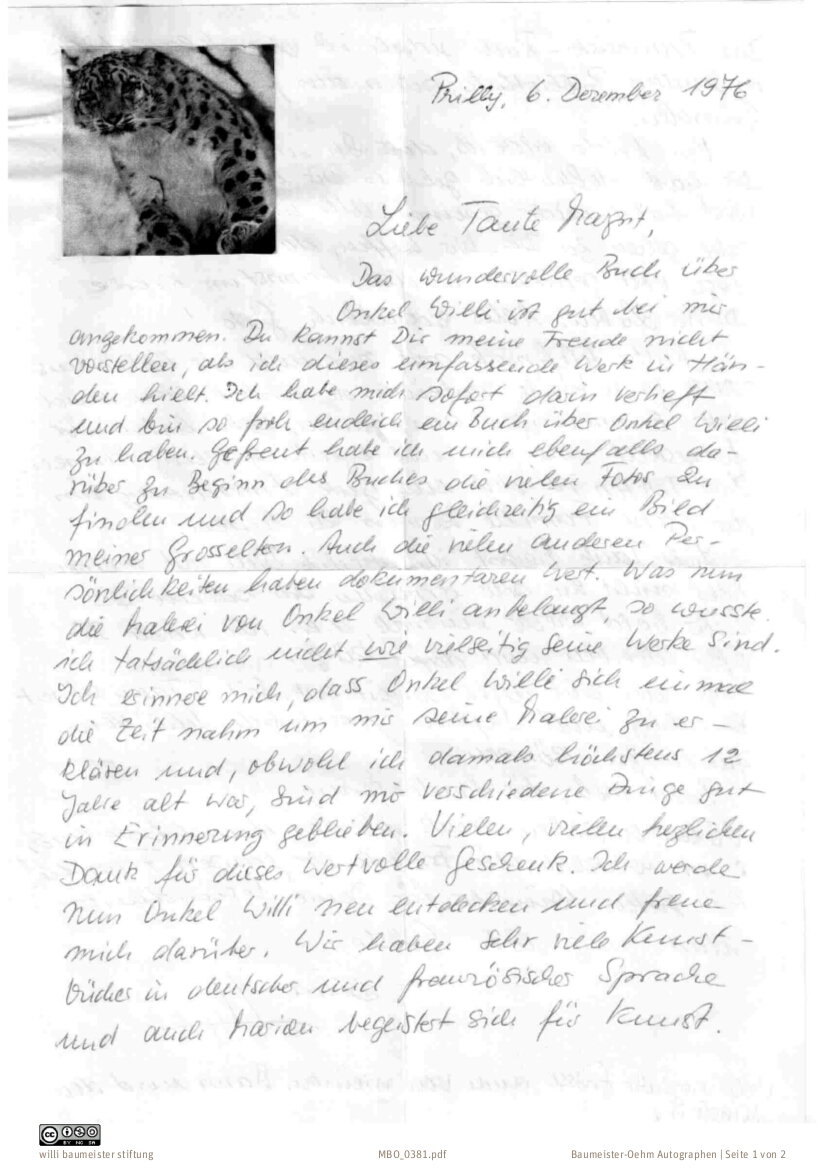 Prilly, 6. Dezember 1976
Liebe Tante Margrit,
Das wundervolle Buch über
Onkel Willi ist gut bei mir
angekommen. Du kannst Dir meine Freude nicht
vorstellen, als ich dieses umfassende Werk in Hän-
den hielt. Ich habe mich sofort darin vertieft
und bin so froh endlich ein Buch über Onkel Willi
zu haben. Gefreut habe ich mich ebenfalls da-
rüber zu Beginn des Buches die vielen Fotos zu
finden und so habe ich gleichzeitig ein Bild
meiner Grosseltern. Auch die vielen anderen Per-
sönlichkeiten haben dokumentaren Wert. Was nun
die Malerei von Onkel Willi anbelangt, so wusste
ich tatsächlich nicht wie vielseitig seine Werke sind.
Ich erinnere mich, dass Onkel Willi sich einmal
die Zeit nahm um mir seine Malerei zu er-
klären und, obwohl ich damals höchstens 12
Jahre alt war, sind mir verschiedene Dinge gut
in Erinnerung geblieben. Vielen, vielen herzlichen
Dank für dieses wertvolle Geschenk. Ich werde
nun Onkel Willi neu entdecken und freue
mich darüber. Wir haben sehr viele Kunst-
bücher in deutscher und französischer Sprache
und auch Marion begeistert sich für Kunst.
cc BY NC SA
willi baumeister stiftung
MBO_0381.pdf
Baumeister-Oehm Autographen | Seite 1 von 2